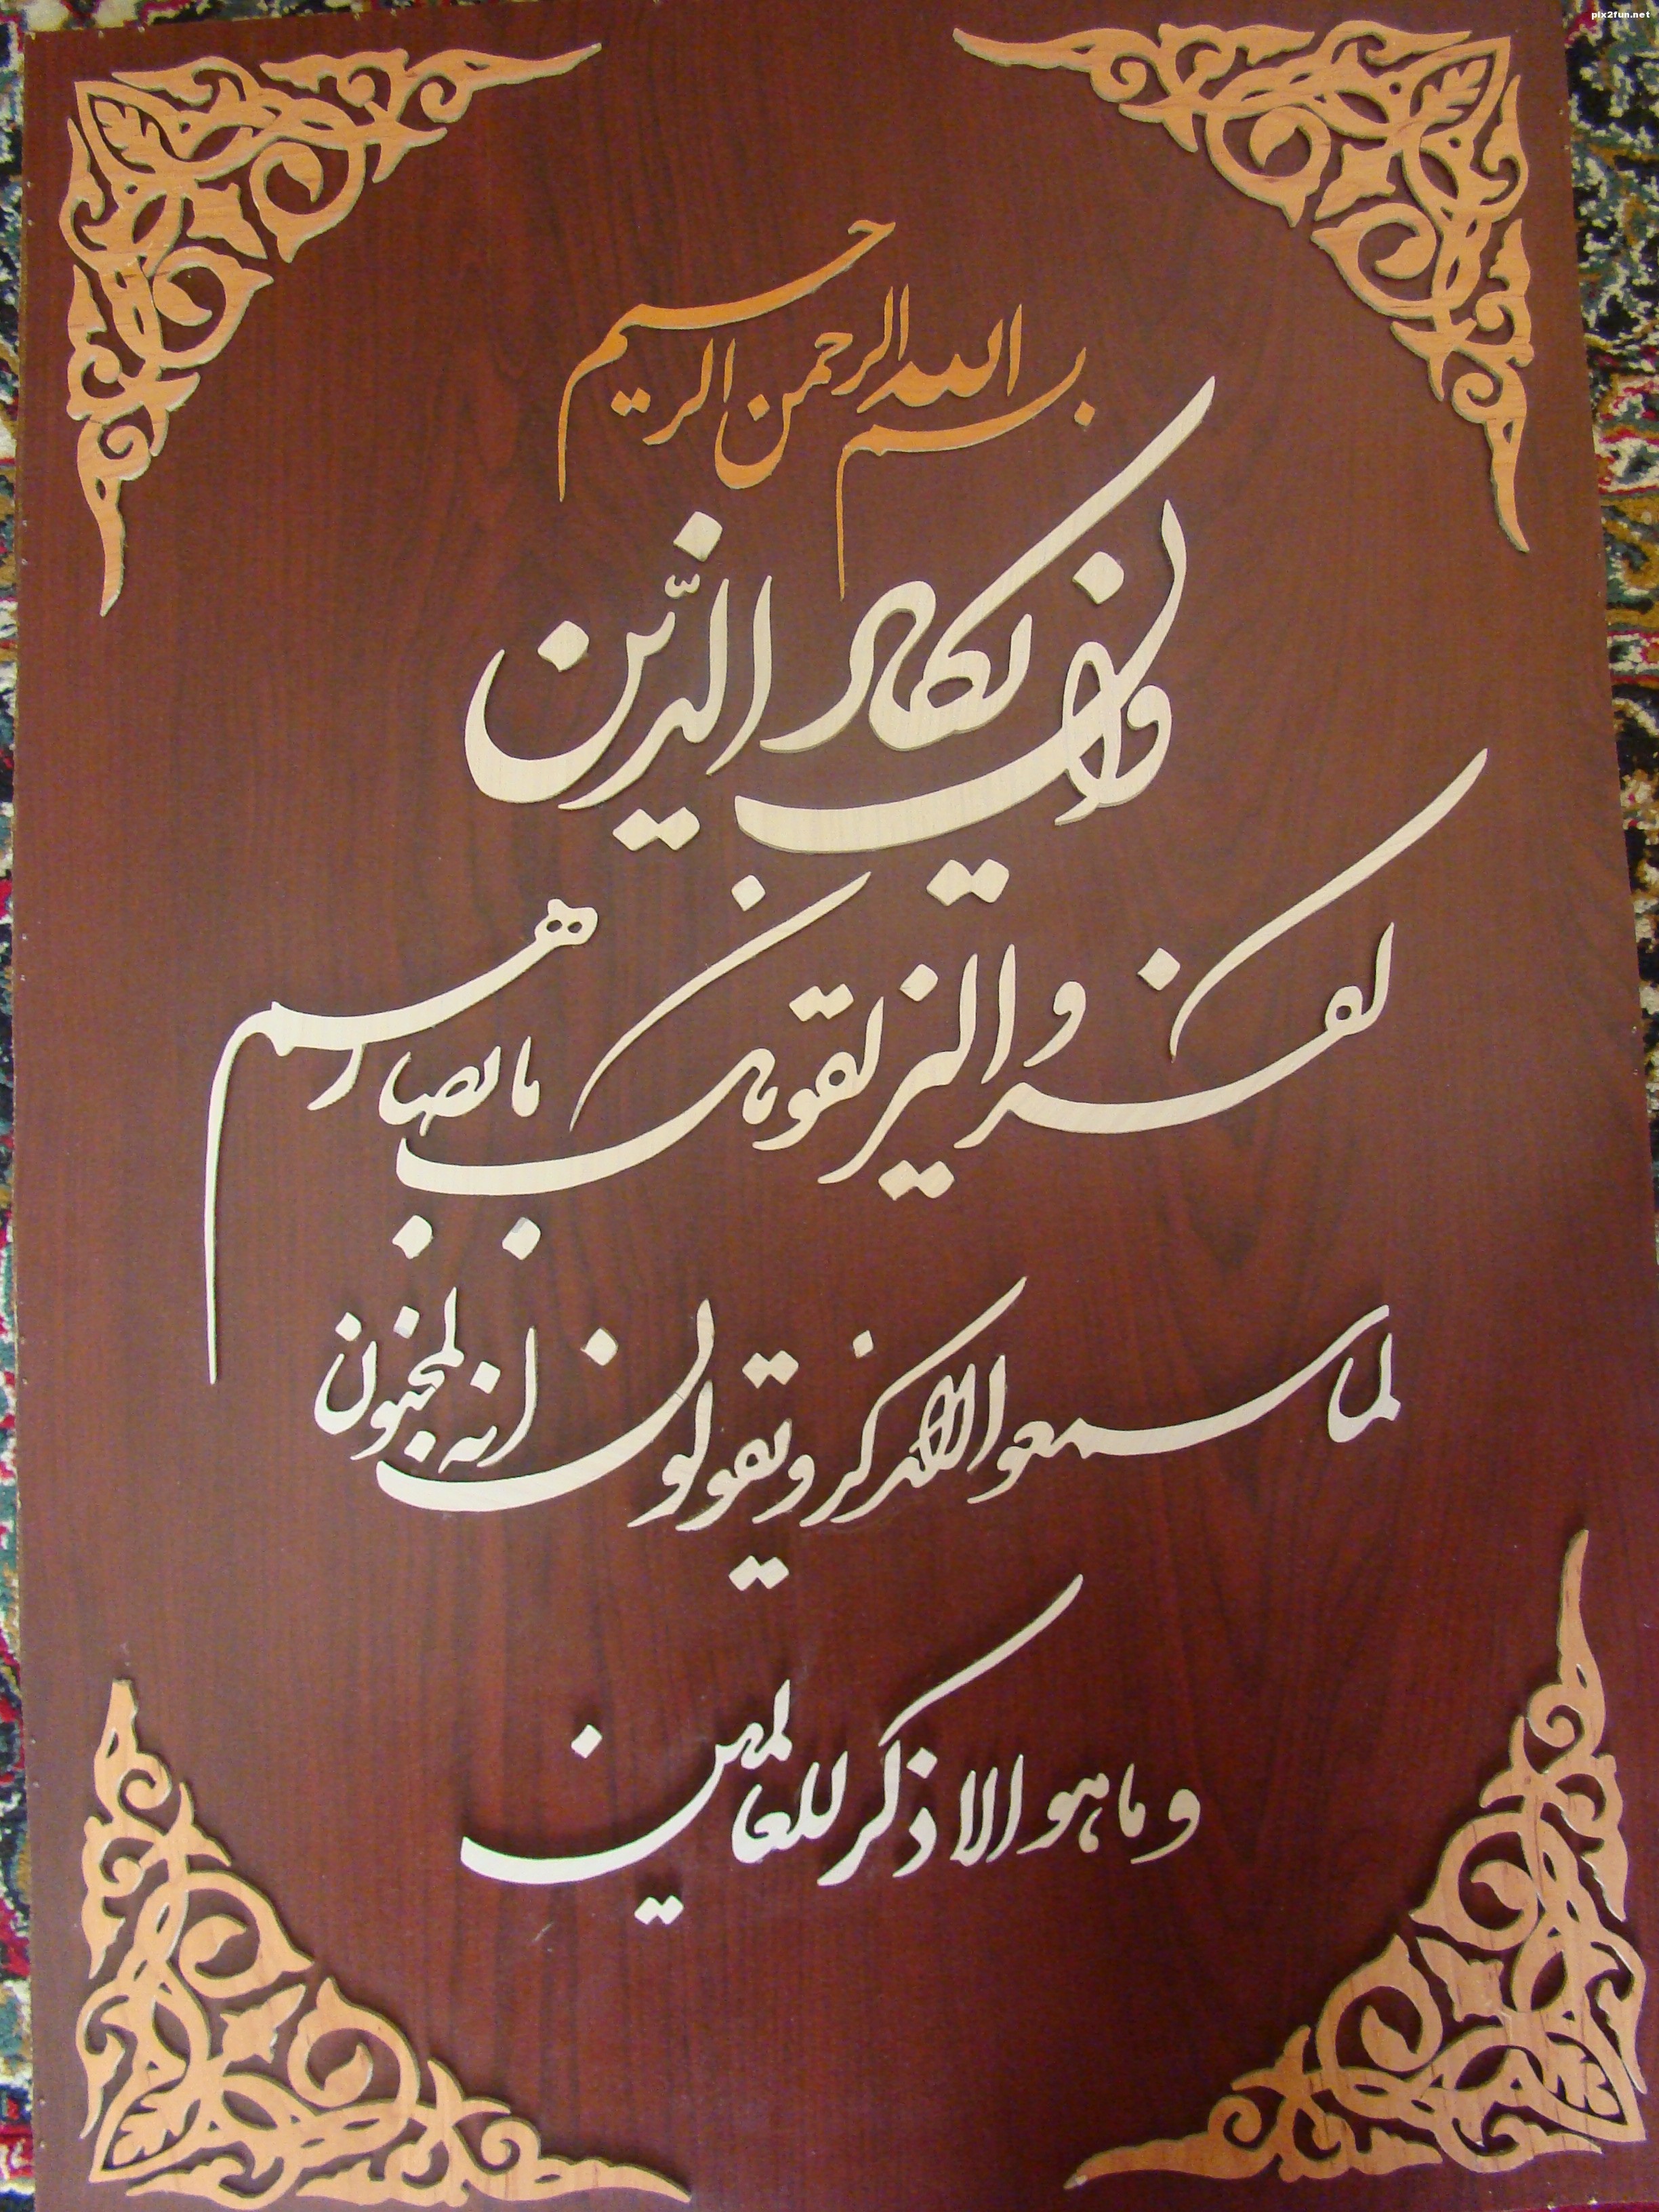 pix2fun.net
بسم الله الرحمن الرحیم
وان یکاد الذین
کفروا لیزلقونک بابصارهم
لما سمعوا الذکر ویقولون انه لمجنون
وما هو الا ذکر للعالمین